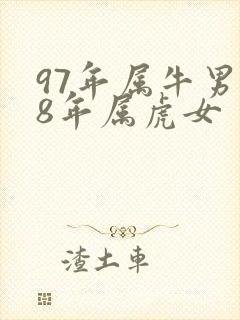 97年属牛男
8年属虎女
渣土車